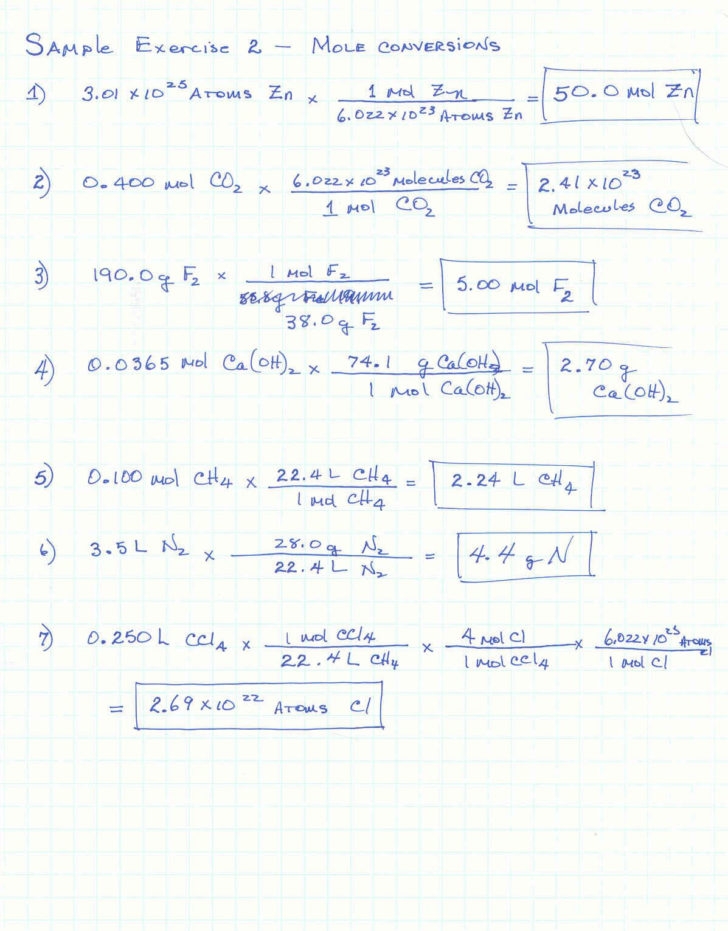 SAMPLE EXERCISE 2 – MOLE CONVERSIONS
1) 3.01 x 10²⁵ ATOMS Zn x 1 mol Zn / 6.022 x 10²³ ATOMS Zn = 50.0 mol Zn
2) 0.400 mol CO₂ x 6.022 x 10²³ Molecules CO₂ / 1 mol CO₂ = 2.41 x 10²³ Molecules CO₂
3) 190.0 g F₂ x 1 mol F₂ / 38.0 g F₂ = 5.00 mol F₂
4) 0.0365 mol Ca(OH)₂ x 74.1 g Ca(OH)₂ / 1 mol Ca(OH)₂ = 2.70 g Ca(OH)₂
5) 0.100 mol CH₄ x 22.4 L CH₄ / 1 mol CH₄ = 2.24 L CH₄
6) 3.5 L N₂ x 28.0 g N₂ / 22.4 L N₂ = 4.4 g N
7) 0.250 L CCl₄ x 1 mol CCl₄ / 22.4 L CH₄ x 4 mol Cl / 1 mol CCl₄ x 6.022 x 10²³ ATOMS Cl / 1 mol Cl
= 2.69 x 10²² ATOMS Cl